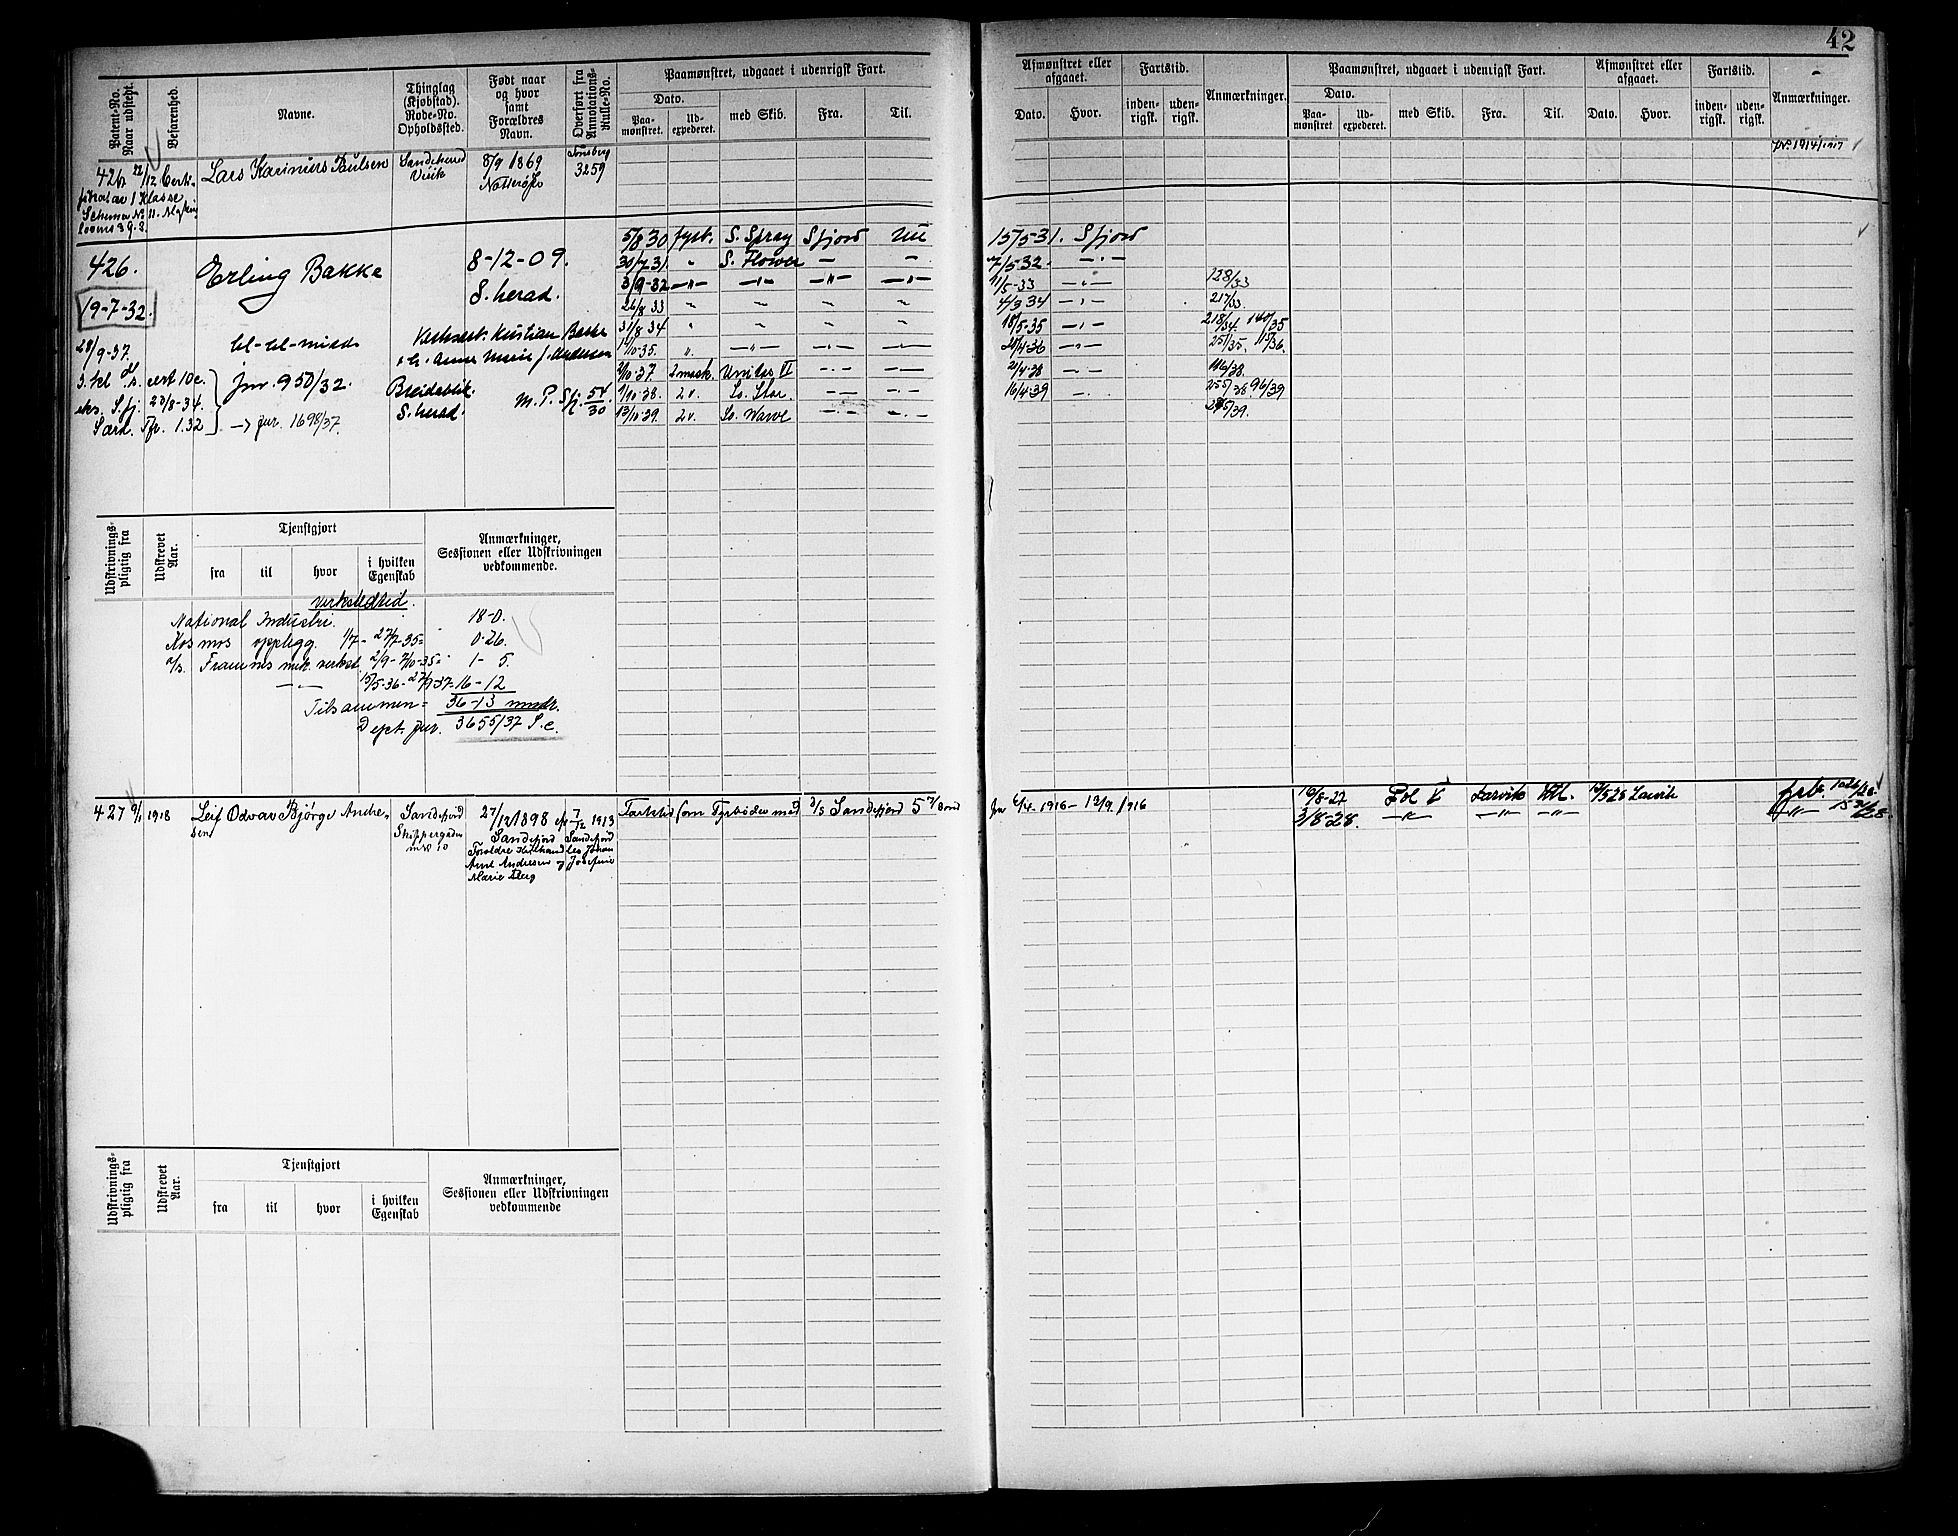 42
Patent-No. Naar udstedt.
Befarenhed.
Navne.
Thinglag (Kjøbstad). Rode-No. Opholdssted.
Født naar og hvor samt Forældres Navn.
Overført fra Annotations-Rulle-No.
Paamønstret, udgaaet i udenrigsk Fart.
Dato.
Paa-mønstret.
Ud-expederet.
med Skib.
Fra.
Til.
Afmønstret eller afgaaet.
Dato.
Hvor.
Fartstid.
inden-rigsk.
uden-rigsk.
Anmærkninger.
Paamønstret, udgaaet i udenrigsk Fart.
Dato.
Paa-mønstret.
Ud-expederet.
med Skib.
Fra.
Til.
Afmønstret eller afgaaet.
Dato.
Hvor.
Fartstid.
inden-rigsk.
uden-rigsk.
Anmærkninger.
426 22/12 Certi-
fikat av 1 Klasse
Lars Karinius Paulsen
Sandeherred
8/9 1869
Nøtterø
Tønsberg
3259
1914/1917
426.
19-7-32.
Erling Bakke
8-12-09.
S. herad.
5/8 30 fyrb. S. Spray Sfjord
15/5-31. Sfjord
30/7 31 " S. Flower — —
7/5-32 — " —
3/9-32 — " — — " — — " — — " —
11/5-33 — " — 128/33
26/8 33 " " "
4/3 34 — " — 217/33.
31/8 34 " " " "
18/5-35 — " — 218/34. 140/35
11/10-35. ". — " — — " — — " —
20/4-36 — " — 251/35. 113/36.
2/10-37. 2 mask. Unitas II — " — — " —
2/4-38 — " — 116/38.
1/10-38. 2 v. So. Star — " — — " —
16/4-39 — " — 255/38. 96/39
13/10 39. 2 v. So. — " — — " —
28/9-37.
3. kl. cert 10c.
eks. S.fj. 23/8-34.
Særd. Tfr. 1.32
jnr. 950/32.
→ jnr. 1698/37.
Kristian Bakke
Anna Marie f. Andersen
Breidablik.
S. herad.
M. P. Sfj. 54/30
Udskrivnings-pligtig fra
Udskrevet Aar.
Tjenstgjort
fra
til
hvor
i hvilken Egenskab
Anmærkninger,
Sessionen eller Udskrivningen
vedkommende.
verkstedtid.
National Industri. 18-0.
Kosmos opplegg. 1/7 - 27/7-35 = 0-26.
a/s. Framnes mek. verkst. 2/9 - 7/10-35 = 1- 5.
— " — 15/5-36 - 27/9-37 = 16-12
Tilsammen = 36-13 mndr.
Dept. jnr. 3655/37 S. c.
427 9/1 1918
Leif Odvar Bjørge Andre-
sen
Sandefjord
Skippergaden
nr. 10
27/12 1898
Sandefjord
Forældre
Arnt Andresen og Josefine
Marie Berg
7/12 1913
Sandefjord
Fartstid som Fyrbøder med D/S Sandefjord 5
jnr 6/4. 1916 - 13/9. 1916
19/8-27 Pol V Larvik
5 28 Larvik
3/8-28. — " — — " — — " —
Udskrivnings-pligtig fra
Udskrevet Aar.
Tjenstgjort
fra
til
hvor
i hvilken Egenskab
Anmærkninger,
Sessionen eller Udskrivningen
vedkommende